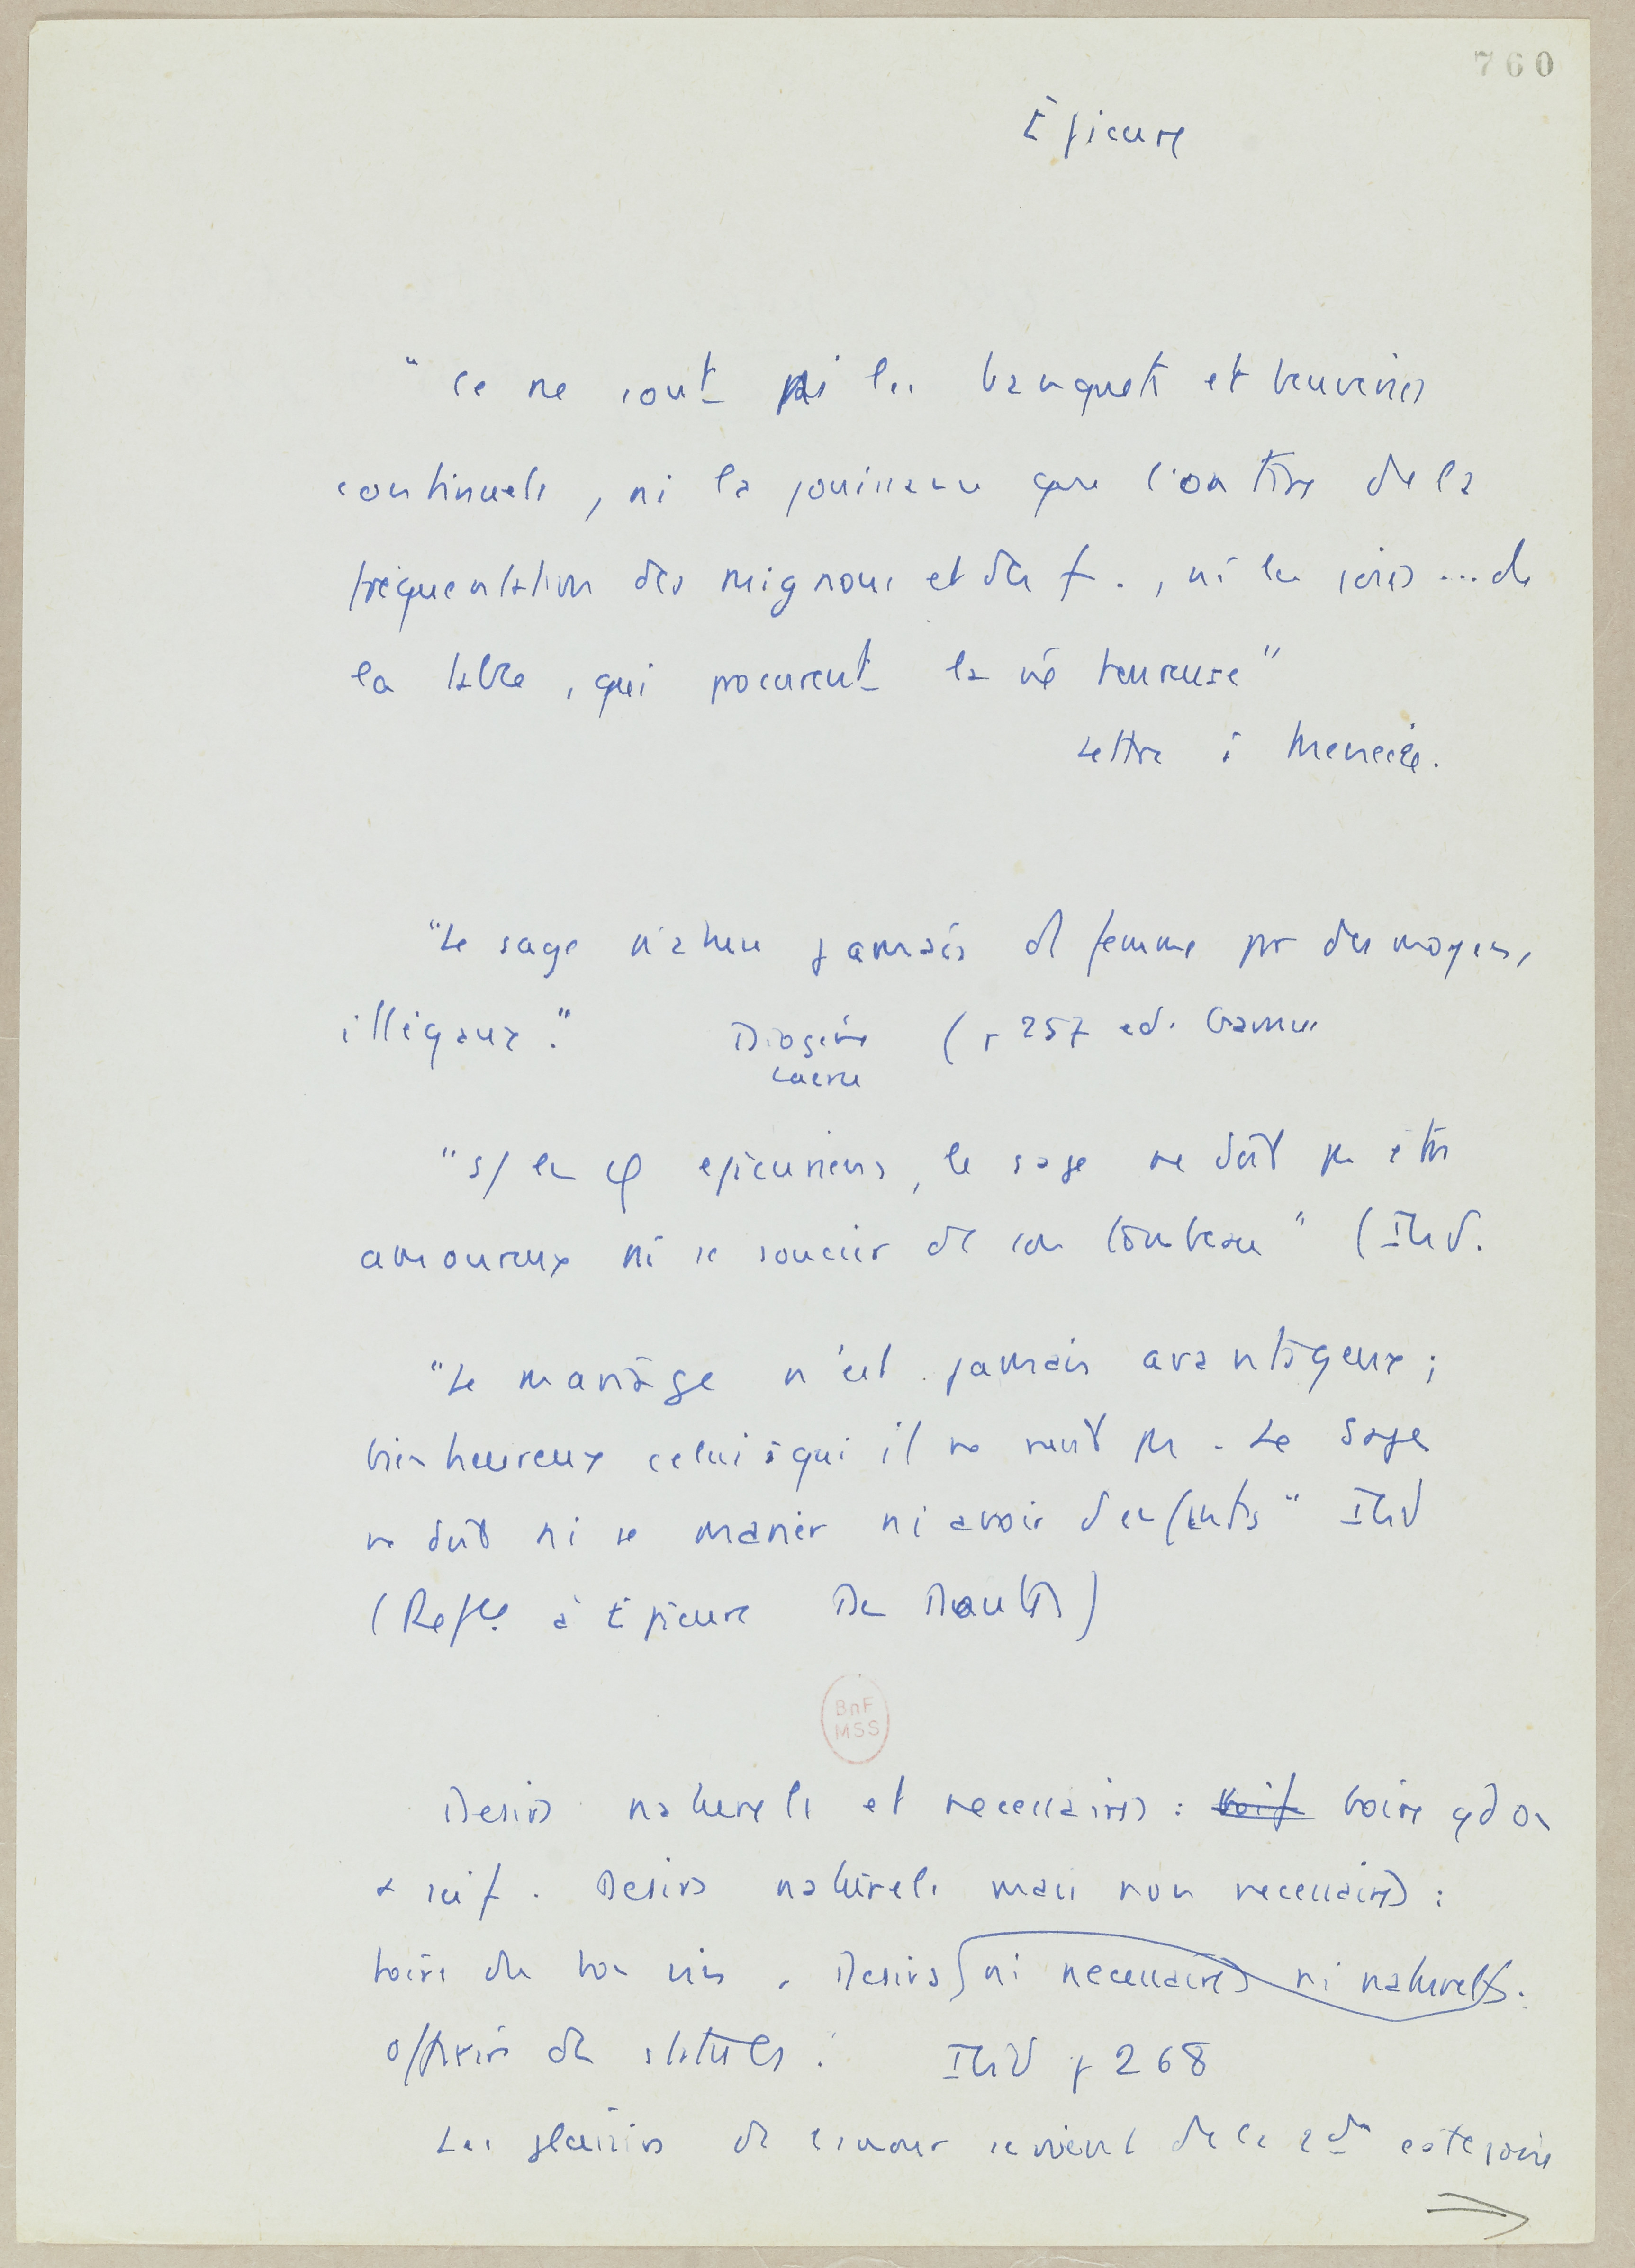 760
Épicure
"Ce ne sont ni les banquets et beuveries
continuels, ni la jouissance que l'on tire de la
fréquentation des mignons et des f., ni les joies ... de
la table, qui procurent la vie heureuse"
Lettre à Menecée.
"Le sage n'a jamais de femme par des moyens
illégaux." Diogène (p 257 ed.
Laerce
"s/ les φ epicuriens, le sage ne doit pas être
amoureux ni se soucier de son tombeau" (Ibid.
"Le mariage n'est jamais avantageux;
bienheureux celui à qui il ne nuit pas. Le sage
ne doit ni se marier ni avoir d'enfants" Ibid
(Refce à Epicure
BnF
MSS
Desirs naturels et necessaires : soif boire qd on
a soif. Desirs naturels mais non necessaires :
boire du bon vin. Desirs ni necessaires ni naturels.
offrir des statues. Ibid p 268
Les plaisirs de l'amour de la 2de categorie